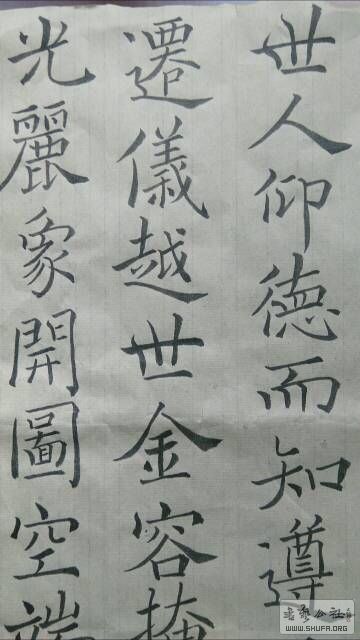 世人仰德而知遵
遷儀越世金容掩
光麗象開圖空端
書藝公社
WWW.SHUFA.ORG